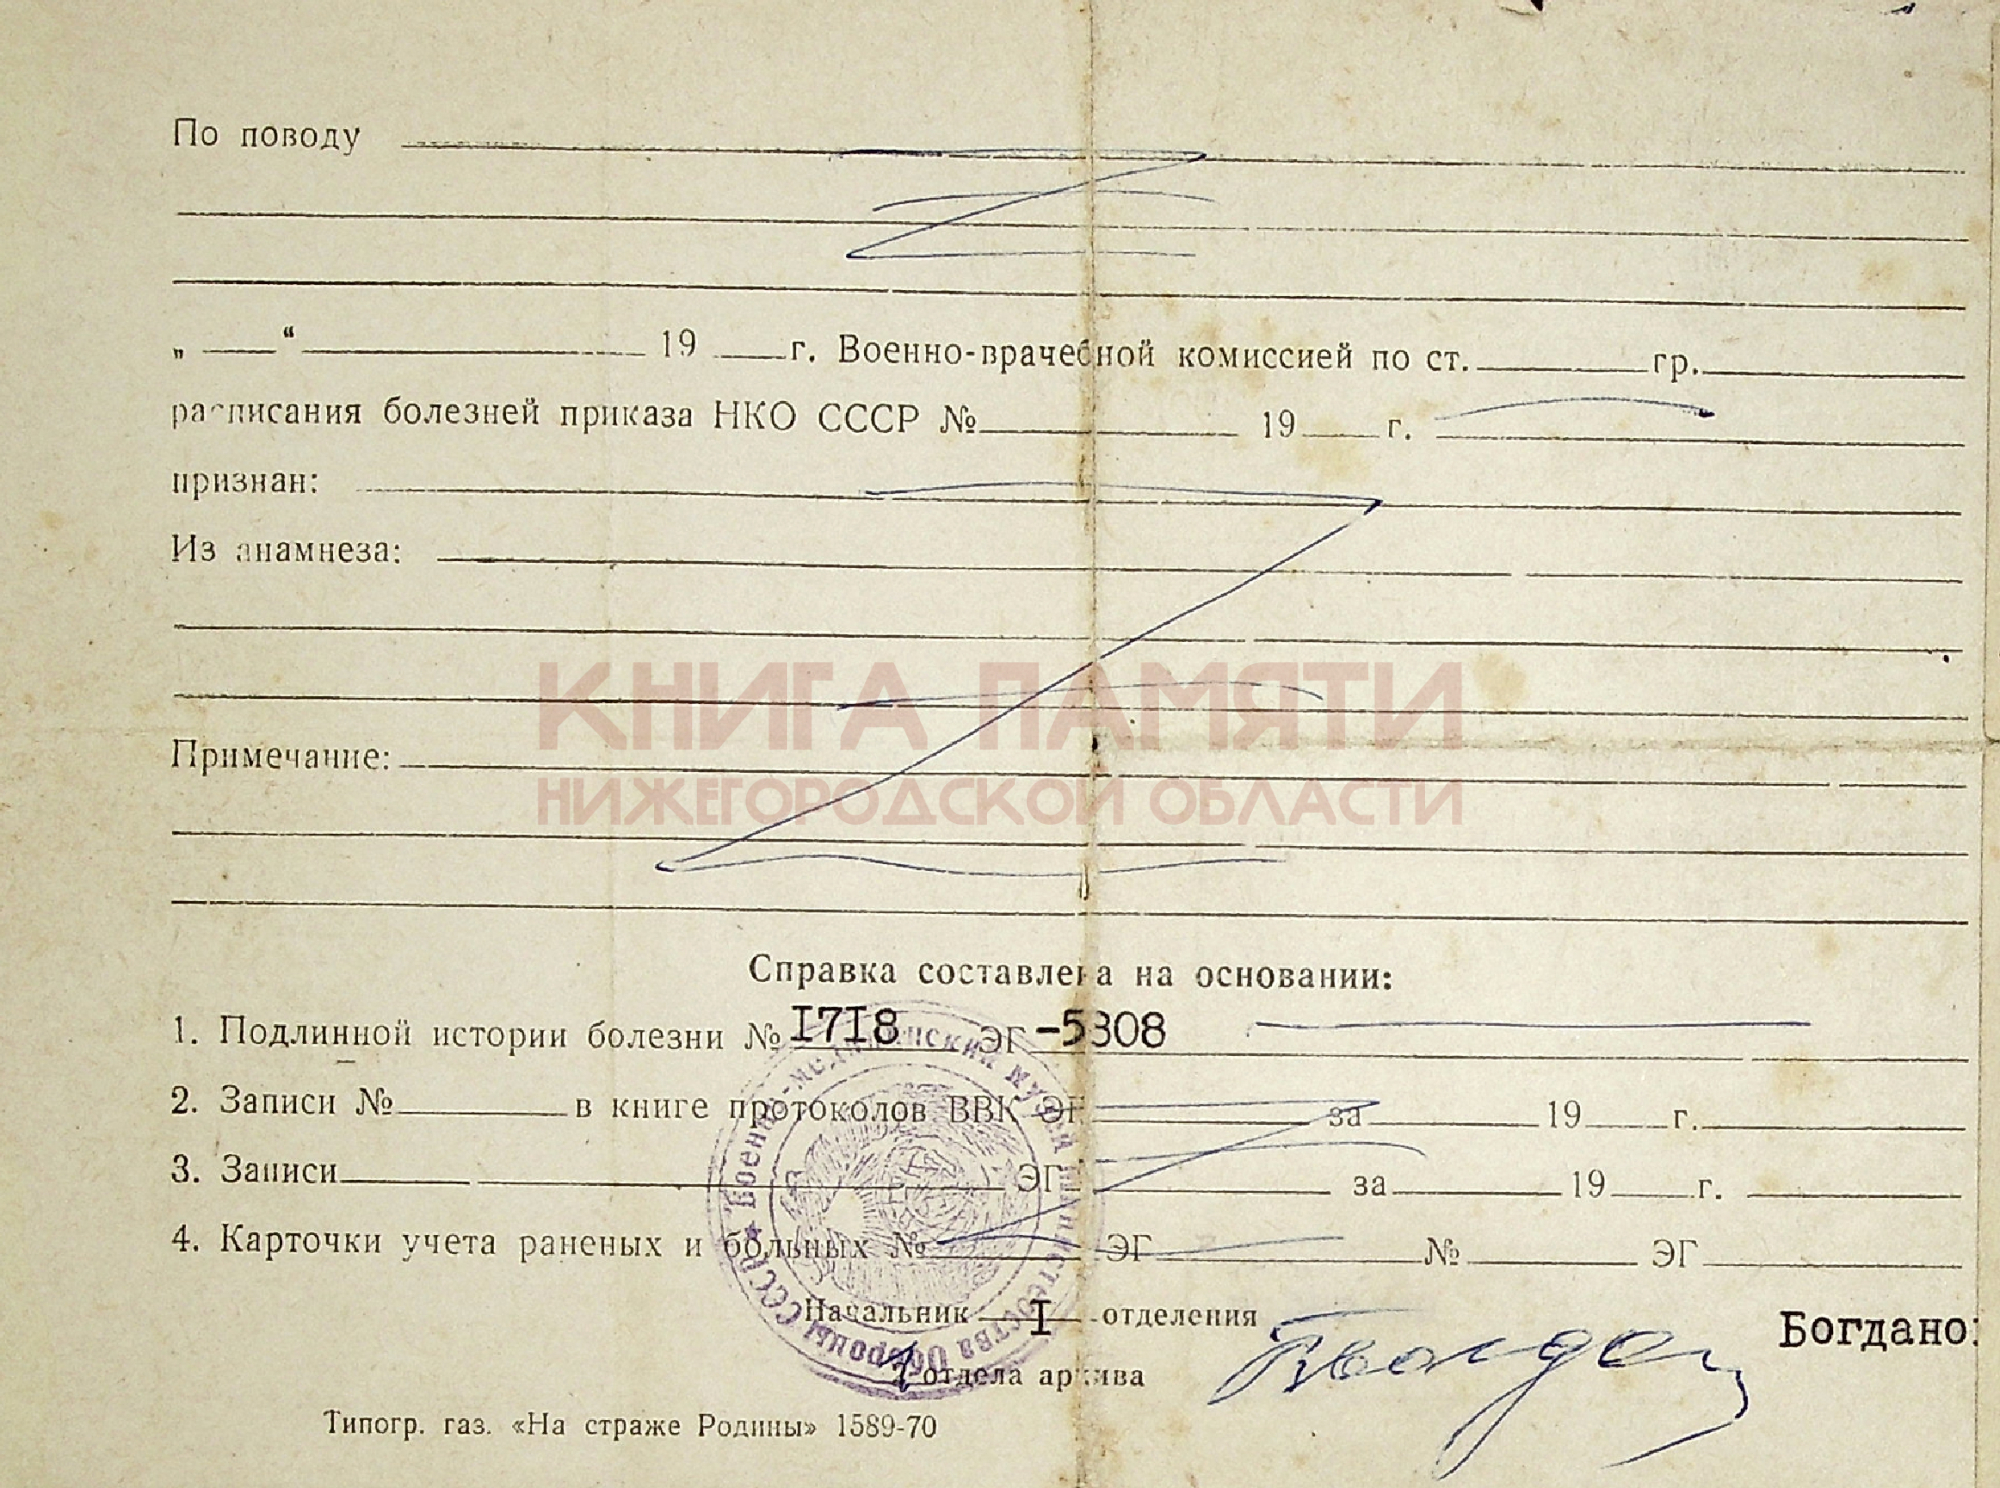 По поводу
„ “ 19 г. Военно-врачебной комиссией по ст. гр.
расписания болезней приказа НКО СССР № 19 г.
признан:
Из анамнеза:
КНИГА ПАМЯТИ
Примечание:
НИЖЕГОРОДСКОЙ ОБЛАСТИ
Справка составлена на основании:
1. Подлинной истории болезни № I7I8 ЭГ -5808
2. Записи № в книге протоколов ВВК ЭГ за 19 г.
3. Записи ЭГ за 19 г.
4. Карточки учета раненых и больных № ЭГ № ЭГ
Военно-медицинский музей Министерства Обороны СССР
Начальник I отделения
Богдано
1 отдела архива
Типогр. газ. «На страже Родины» 1589-70